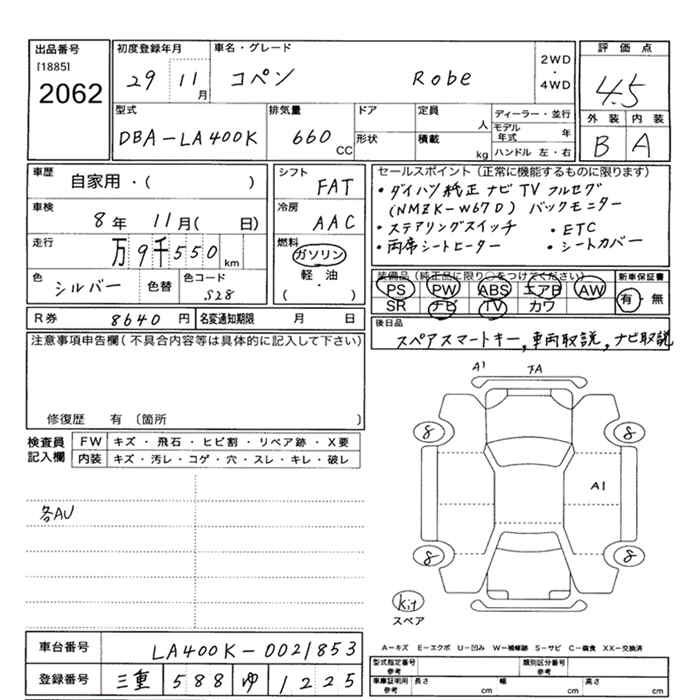 出品番号 初度登録年月 車名・グレード 評価点
[1885] 2WD
2062 29 11月 コペン Robe ・ 4.5
4WD
型式 排気量 ドア 定員 人 ディーラー・並行 外装 内装
DBA-LA400K 660 CC 形状 積載 kg モデル年式 年 B A
ハンドル 左・右
車歴 自家用・( )
車検 8年 11月( 日)
走行 万9千550km
色 シルバー 色替 色コード S28
シフト FAT
冷房 AAC
燃料 ガソリン
軽・油
( ・ )
セールスポイント(正常に機能するものに限ります)
・ダイハツ純正ナビ TV フルセグ
(NMZK-W67D) バックモニター
・ステアリングスイッチ ・ETC
・両席シートヒーター ・シートカバー
装備品(純正品に限り○をつけてください) 新車保証書
PS PW ABS エアB AW 有・無
SR ナビ TV カワ
R券 8640円 名変通知期限 月 日
後日品
スペアスマートキー,車両取説,ナビ取説
注意事項申告欄(不具合内容等は具体的に記入して下さい)
修復歴 有 〔箇所 〕
検査員 FW キズ・飛石・ヒビ割・リペア跡・X要
記入欄 内装 キズ・汚レ・コゲ・穴・スレ・キレ・破レ
各AU
A1
8 8
A1
8 8
kit
スペア
車台番号 LA400K-0021853
登録番号 三重 588 ゆ 1225
A-キズ E-エクボ U-凹み W-補修跡 S-サビ C-腐食 XX-交換済
型式指定番号 参考 類別区分番号 参考
車庫証明用 参考 長さ cm 幅 cm 高さ cm